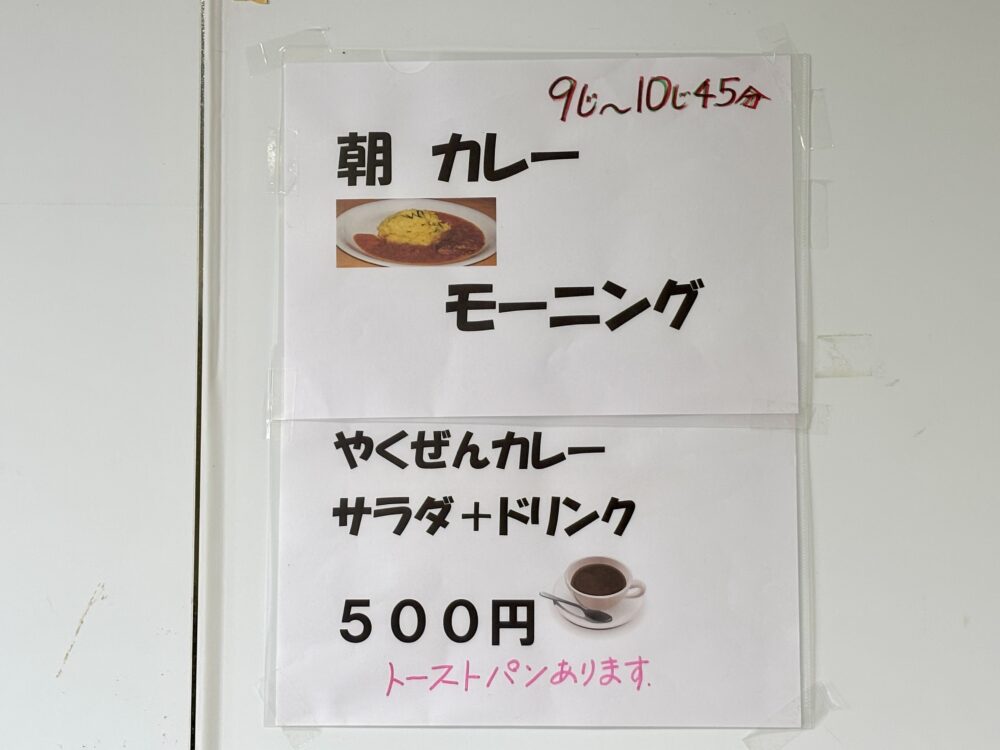 9じ～10じ45分
朝 カレー
モーニング
やくぜんカレー
サラダ＋ドリンク
５００円
トーストパンあります.